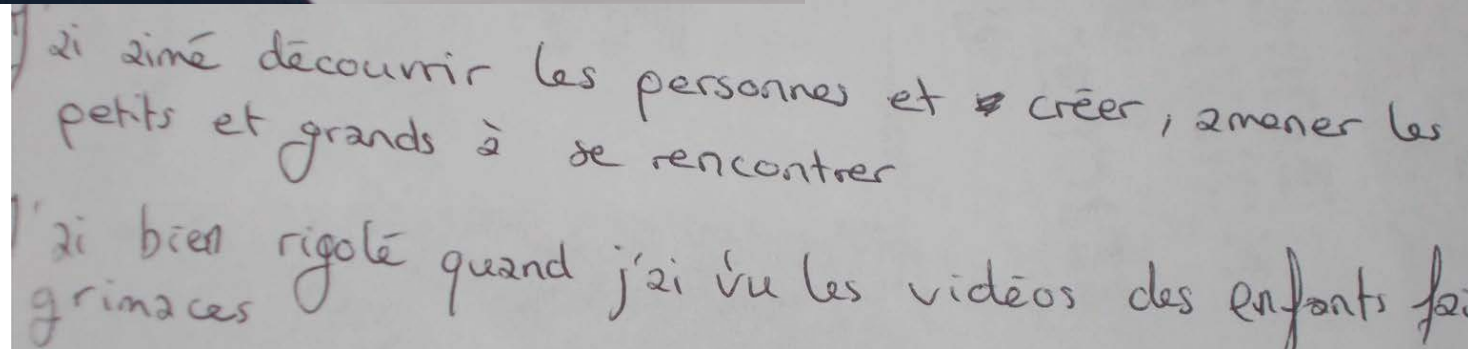 J'ai aimé découvrir les personnes et créer, amener les
petits et grands à se rencontrer
J'ai bien rigolé quand j'ai vu les vidéos des enfants
grimaces